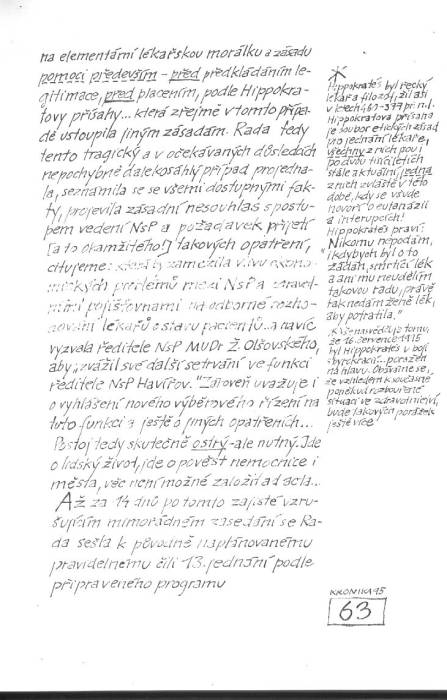 na elementární lékařskou morálku a zásadu
pomoci především - před předkládáním le-
gitimace, před placením, podle Hippokra-
tovy přísahy... která zřejmě v tomto přípa-
dě ustoupila jiným zásadám. Rada tedy
tento tragický a v očekávaných důsledcích
nepochybně dalekosáhlý případ projedna-
la, seznámila se se všemi dostupnými fak-
ty, projevila zásadní nesouhlas s postu-
pem vedení NsP a požadavek přijetí
[a to okamžitého!] takových opatření,
citujeme: která by zamezila vlivu ekono-
mických problémů mezi NsP a zdravot-
ními pojišťovnami na odborné rozho-
dování lékařů o stavu pacientů...a navíc
vyzvala ředitele NsP MUDr Ž. Olšovského,
aby „zvážil své další setrvání ve funkci
ředitele NsP Havířov." Zároveň uvažuje i
o vyhlášení nového výběrového řízení na
tuto funkci a ještě o jiných opatřeních...
Postoj tedy skutečně ostrý - ale nutný. Jde
o lidský život, jde o pověst nemocnice i
města, věc není možné založit ad acta...
Až za 14 dnů po tomto zajisté vzru-
šujícím mimořádném zasedání se Ra-
da sešla k původně naplánovanému
pravidelnému čili 13. jednání podle
připraveného programu
*
Hippokratés byl řecký
lékař a filozof, žil asi
v letech 460-377 př.n.l.
Hippokratova přísaha
je soubor etických zásad
pro jednání lékaře,
všechny z nich jsou i
po dvou tisíciletích
stále aktuální, jedna
z nich zvláště v této
době, kdy se všude
hovoří o eutanázii
a interupcích!
Hippokratés praví:
Nikomu nepodám,
i kdybych byl o to
žádán, smrtící lék
a ani mu neudělím
takovou radu, právě
tak nedám ženě lék,
aby potratila."
Vše nasvědčuje tomu,
že 16. července 1995
byl Hippokratés v boji
s byrokracií... poražen
na hlavu. Obáváme se,
že vzhledem k současné
poněkud rozbouřené
situaci ve zdravotnictví,
bude takových porážek
ještě více
KRONIKA 95
63